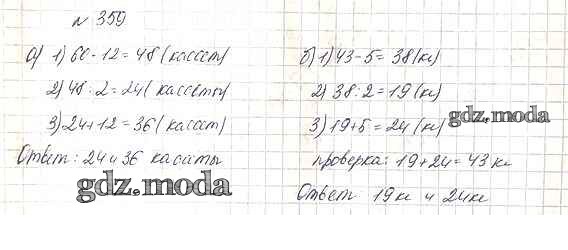 № 359
а) 1) 60-12=48 (кассет)
2) 48:2=24 (кассеты)
3) 24+12=36 (кассет)
Ответ: 24 и 36 кассеты
gdz.moda
б) 1) 43-5=38 (кг)
2) 38:2=19 (кг)
3) 19+5=24 (кг)
gdz.moda
проверка: 19+24=43 кг
Ответ 19кг и 24кг